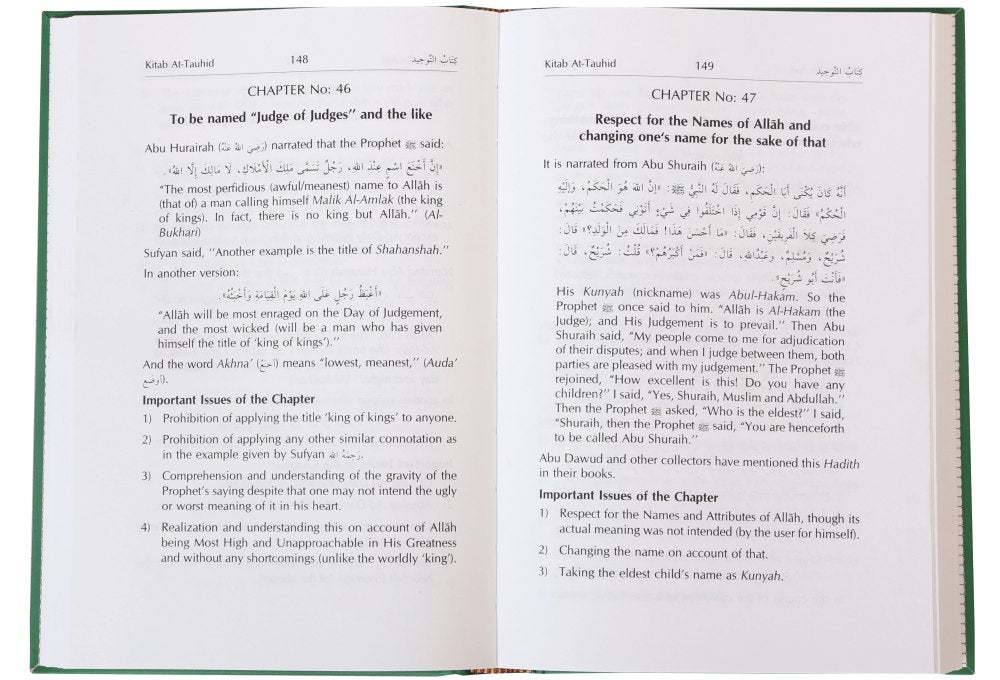 Kitab At-Tauhid 148 كِتَابُ التَّوحِيد
CHAPTER No: 46
To be named “Judge of Judges” and the like
Abu Hurairah (رَضِيَ اللهُ عَنْهُ) narrated that the Prophet ﷺ said:
«إِنَّ أَخْنَعَ اسْمٍ عِنْدَ اللهِ، رَجُلٌ تَسَمَّى مَلِكَ الْأَمْلَاكِ، لَا مَالِكَ إِلَّا اللهُ».
“The most perfidious (awful/meanest) name to Allāh is
(that of) a man calling himself Malik Al-Amlak (the king
of kings). In fact, there is no king but Allāh.” (Al-
Bukhari)
Sufyan said, “Another example is the title of Shahanshah.”
In another version:
«أَغْيَظُ رَجُلٍ عَلَى اللهِ يَوْمَ الْقِيَامَةِ وَأَخْبَثُهُ».
“Allāh will be most enraged on the Day of Judgement,
and the most wicked (will be a man who has given
himself the title of ‘king of kings’).”
And the word Akhna’ (أخنع) means “lowest, meanest,” (Auda‘
أوضع).
Important Issues of the Chapter
1) Prohibition of applying the title ‘king of kings’ to anyone.
2) Prohibition of applying any other similar connotation as
in the example given by Sufyan رَحِمَهُ الله.
3) Comprehension and understanding of the gravity of the
Prophet’s saying despite that one may not intend the ugly
or worst meaning of it in his heart.
4) Realization and understanding this on account of Allāh
being Most High and Unapproachable in His Greatness
and without any shortcomings (unlike the worldly ‘king’).
Kitab At-Tauhid 149 كِتَابُ التَّوحِيد
CHAPTER No: 47
Respect for the Names of Allāh and
changing one’s name for the sake of that
It is narrated from Abu Shuraih (رَضِيَ اللهُ عَنْهُ):
أَنَّهُ كَانَ يُكْنَى أَبَا الْحَكَمِ، فَقَالَ لَهُ النَّبِيُّ ﷺ: «إِنَّ اللهَ هُوَ الْحَكَمُ، وَإِلَيْهِ
الْحُكْمُ» فَقَالَ: إِنَّ قَوْمِي إِذَا اخْتَلَفُوا فِي شَيْءٍ أَتَوْنِي فَحَكَمْتُ بَيْنَهُمْ،
فَرَضِيَ كِلَا الْفَرِيقَيْنِ، فَقَالَ: «مَا أَحْسَنَ هَذَا! فَمَالَكَ مِنَ الْوَلَدِ؟» قَالَ:
شُرَيْحٌ، وَمُسْلِمٌ، وعَبْدُاللهِ، قَالَ: «فَمَنْ أَكْبَرُهُمْ؟» قُلْتُ: شُرَيْحٌ، قَالَ:
«فَأَنْتَ أَبُو شُرَيْحٍ».
His Kunyah (nickname) was Abul-Hakam. So the
Prophet ﷺ once said to him. “Allāh is Al-Hakam (the
Judge); and His Judgement is to prevail.” Then Abu
Shuraih said, “My people come to me for adjudication
of their disputes; and when I judge between them, both
parties are pleased with my judgement.” The Prophet ﷺ
rejoined, “How excellent is this! Do you have any
children?” I said, “Yes, Shuraih, Muslim and Abdullah.”
Then the Prophet ﷺ asked, “Who is the eldest?” I said,
“Shuraih, then the Prophet ﷺ said, “You are henceforth
to be called Abu Shuraih.”
Abu Dawud and other collectors have mentioned this Hadith
in their books.
Important Issues of the Chapter
1) Respect for the Names and Attributes of Allāh, though its
actual meaning was not intended (by the user for himself).
2) Changing the name on account of that.
3) Taking the eldest child’s name as Kunyah.